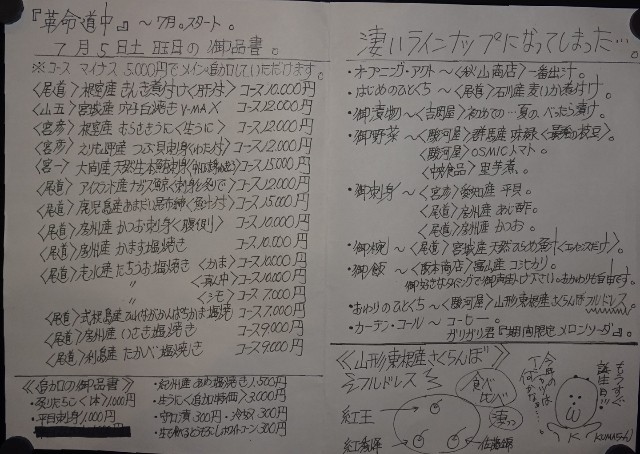 『革命道中』～7月。スタート。
7月5日土曜日の御品書。
※コース マイナス5.000円でメイン追加していただけます。
〈尾道〉根室産きんき煮付け〈肝付〉 コース10.000円
〈山五〉宮城産 コース12.000円
〈宮彦〉根室産むらさきうに〈生うに〉 コース12.000円
〈宮彦〉えりも産つぶ貝刺身〈わた付〉 コース12.000円
〈宮一〉大間産天然生本鮪刺身 コース15.000円
〈尾道〉アイスランド産 コース12.000円
〈尾道〉鹿児島産あまだい コース15.000円
〈尾道〉房州産かつお刺身〈腹側〉 コース10.000円
〈尾道〉房州産かます塩焼き コース10.000円
〈尾道〉 産たちうお塩焼き〈かま〉コース10.000円
〃 〈真ん中〉コース10.000円
〃 〈シモ〉コース7.000円
〈尾道〉式根島産 かんぱちかま塩焼 コース7.000円
〈尾道〉房州産いさき塩焼き コース9.000円
〈尾道〉利島産たかべ塩焼き コース9.000円
《追加の御品書》
・炙りたらこ〈1本〉1,000円
・平目刺身1,000円
・紀州産あゆ塩焼き1,500円
・生うに〈追加特価〉3,000円
・守口漬300円・冷奴300円
・生で食べるとうもろこしホワイトコーン300円
凄いラインナップになってしまった…。
・オープニング・アクト～〈秋山商店〉一番出汁。
・はじめのひとくち～〈尾道〉石川産麦いか煮付け。
・御漬物～〈吉岡屋〉初めての…夏の、べったら漬け。
・御野菜～〈駿河屋〉群馬産
〈駿河屋〉OSMICトマト。
〈 食品〉里芋煮。
・御刺身～〈宮彦〉愛知産平貝。
〈尾道〉房州産あじ酢。
〈尾道〉房州産かつお。
・御椀～〈尾道〉宮城産天然
・御飯～〈坂本商店〉富山産コシヒカリ。
御好きなタイミングで御声掛け下さい。おかわりも自由です。
・おわりのひとくち～〈駿河屋〉山形東根産さくらんぼフルドレス
・カーテン・コール～コーヒー。
ガリガリ君『期間限定メロンソーダ』。
《山形東根産さくらんぼ》
フルドレス
食べ比べ
凄っ
紅王
紅秀峰
佐藤錦
今年の
Tシャツは
何かな…。
もうすぐ
誕生日!!
K
(KUMAちゃん)